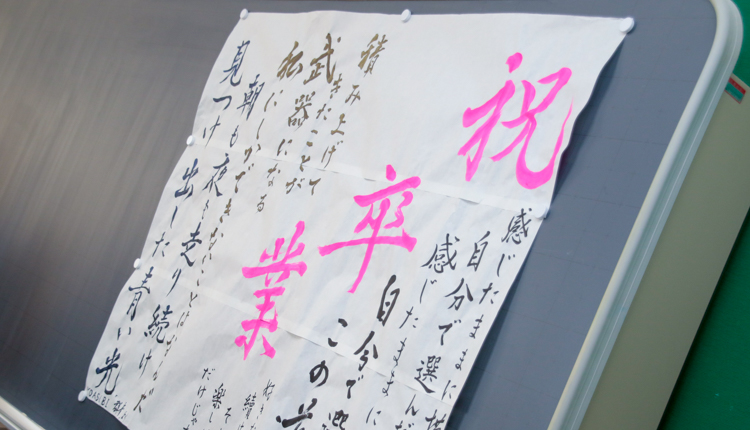 祝
卒
業
感じたままに
自分で選んだ
感じたままに
自分で
この
積み上げて
きたことが
武器になる
私にしかできないことは
朝も夜も走り続け
見つけ出した青い光
好きな
続
そ
楽し
だけじゃ